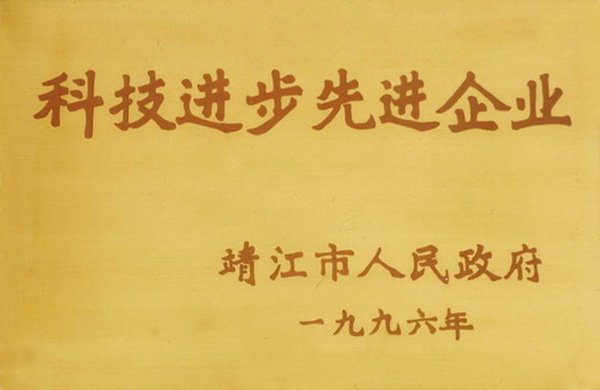 科技进步先进企业
靖江市人民政府
一九九六年